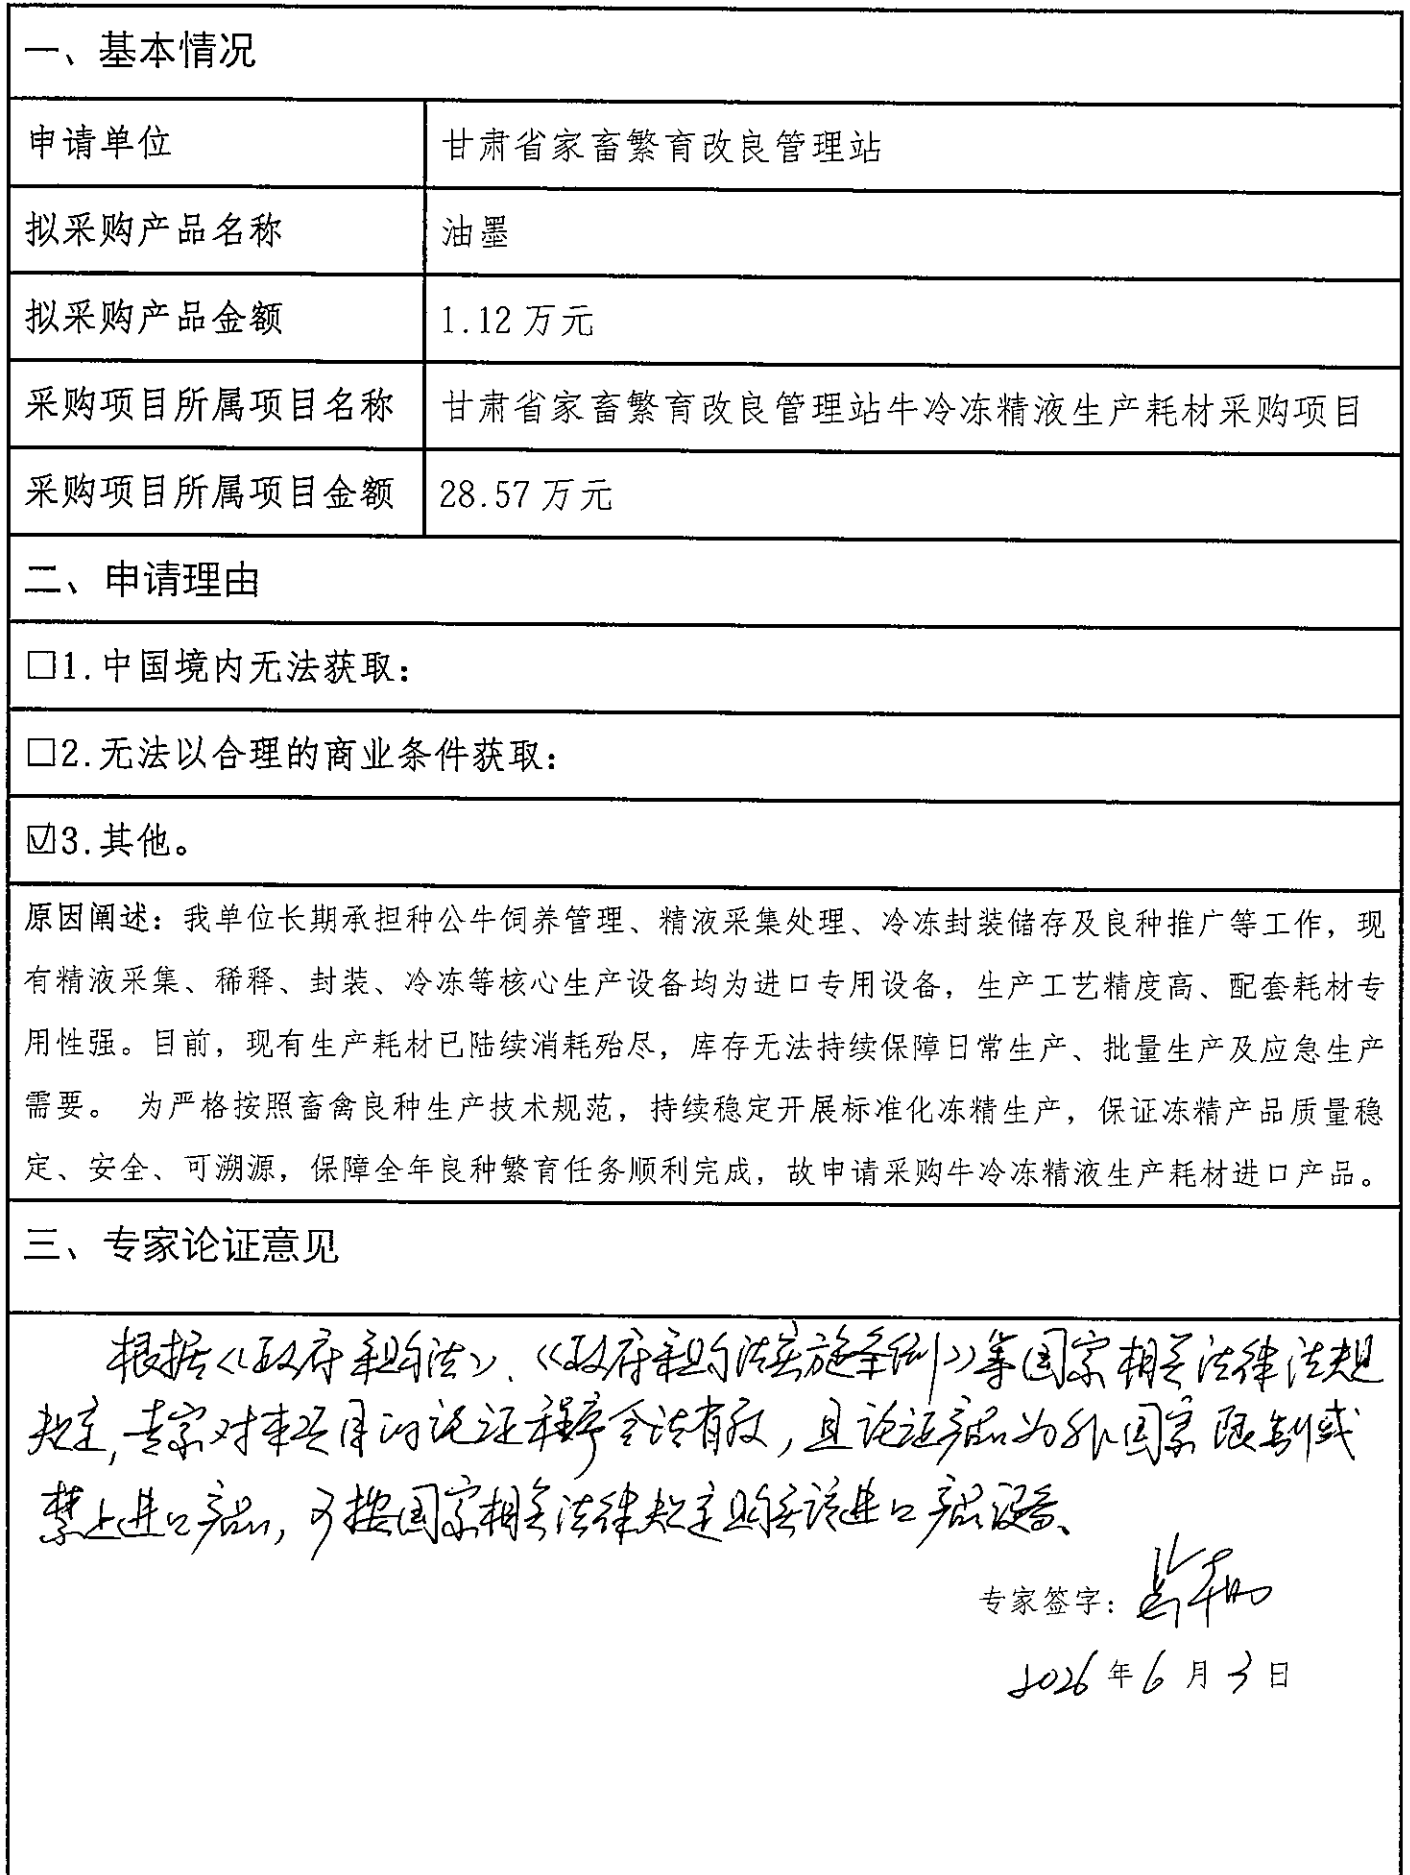 一、基本情况
申请单位 甘肃省家畜繁育改良管理站
拟采购产品名称 油墨
拟采购产品金额 1.12万元
采购项目所属项目名称 甘肃省家畜繁育改良管理站牛冷冻精液生产耗材采购项目
采购项目所属项目金额 28.57万元
二、申请理由
□1.中国境内无法获取：
□2.无法以合理的商业条件获取：
☑3.其他。
原因阐述：我单位长期承担种公牛饲养管理、精液采集处理、冷冻封装储存及良种推广等工作，现
有精液采集、稀释、封装、冷冻等核心生产设备均为进口专用设备，生产工艺精度高、配套耗材专
用性强。目前，现有生产耗材已陆续消耗殆尽，库存无法持续保障日常生产、批量生产及应急生产
需要。 为严格按照畜禽良种生产技术规范，持续稳定开展标准化冻精生产，保证冻精产品质量稳
定、安全、可溯源，保障全年良种繁育任务顺利完成，故申请采购牛冷冻精液生产耗材进口产品。
三、专家论证意见
根据《政府采购法》、《政府采购法实施条例》等国家相关法律法规
规定，专家对本项目的论证程序合法有效，且论证产品为非国家限制或
禁止进口产品，可按国家相关法律规定购买该进口产品设备。
专家签字：
2026年6月3日